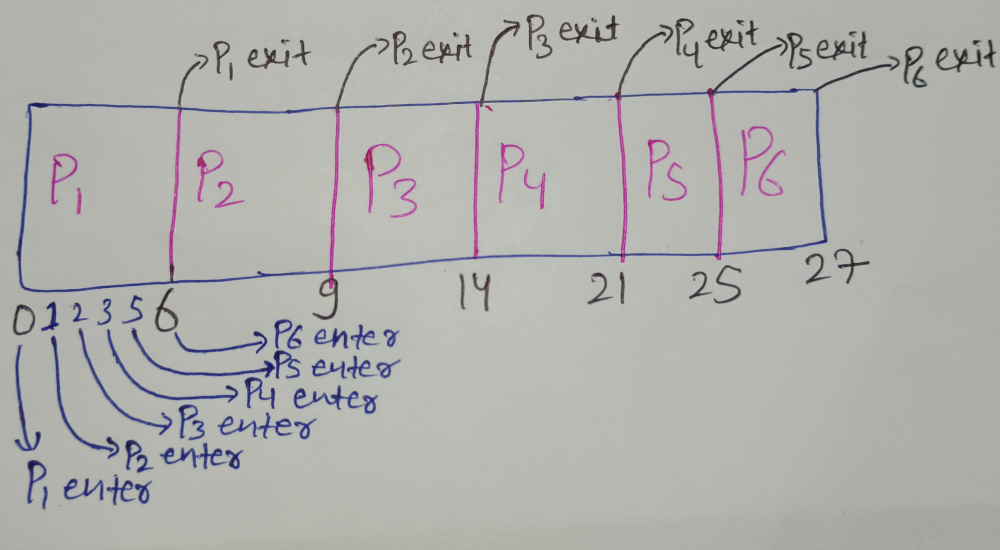 P1 exit
P2 exit
P3 exit
P4 exit
P5 exit
P6 exit
P1 P2 P3 P4 P5 P6
0 1 2 3 5 6 9 14 21 25 27
P6 enter
P5 enter
P4 enter
P3 enter
P2 enter
P1 enter